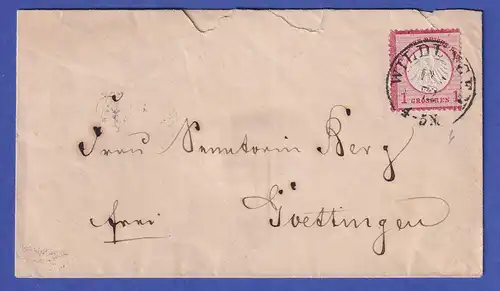 WILDUNGEN
4-5N.
1 GROSCHEN 1
Frau Senatorin Berg
frei Goettingen